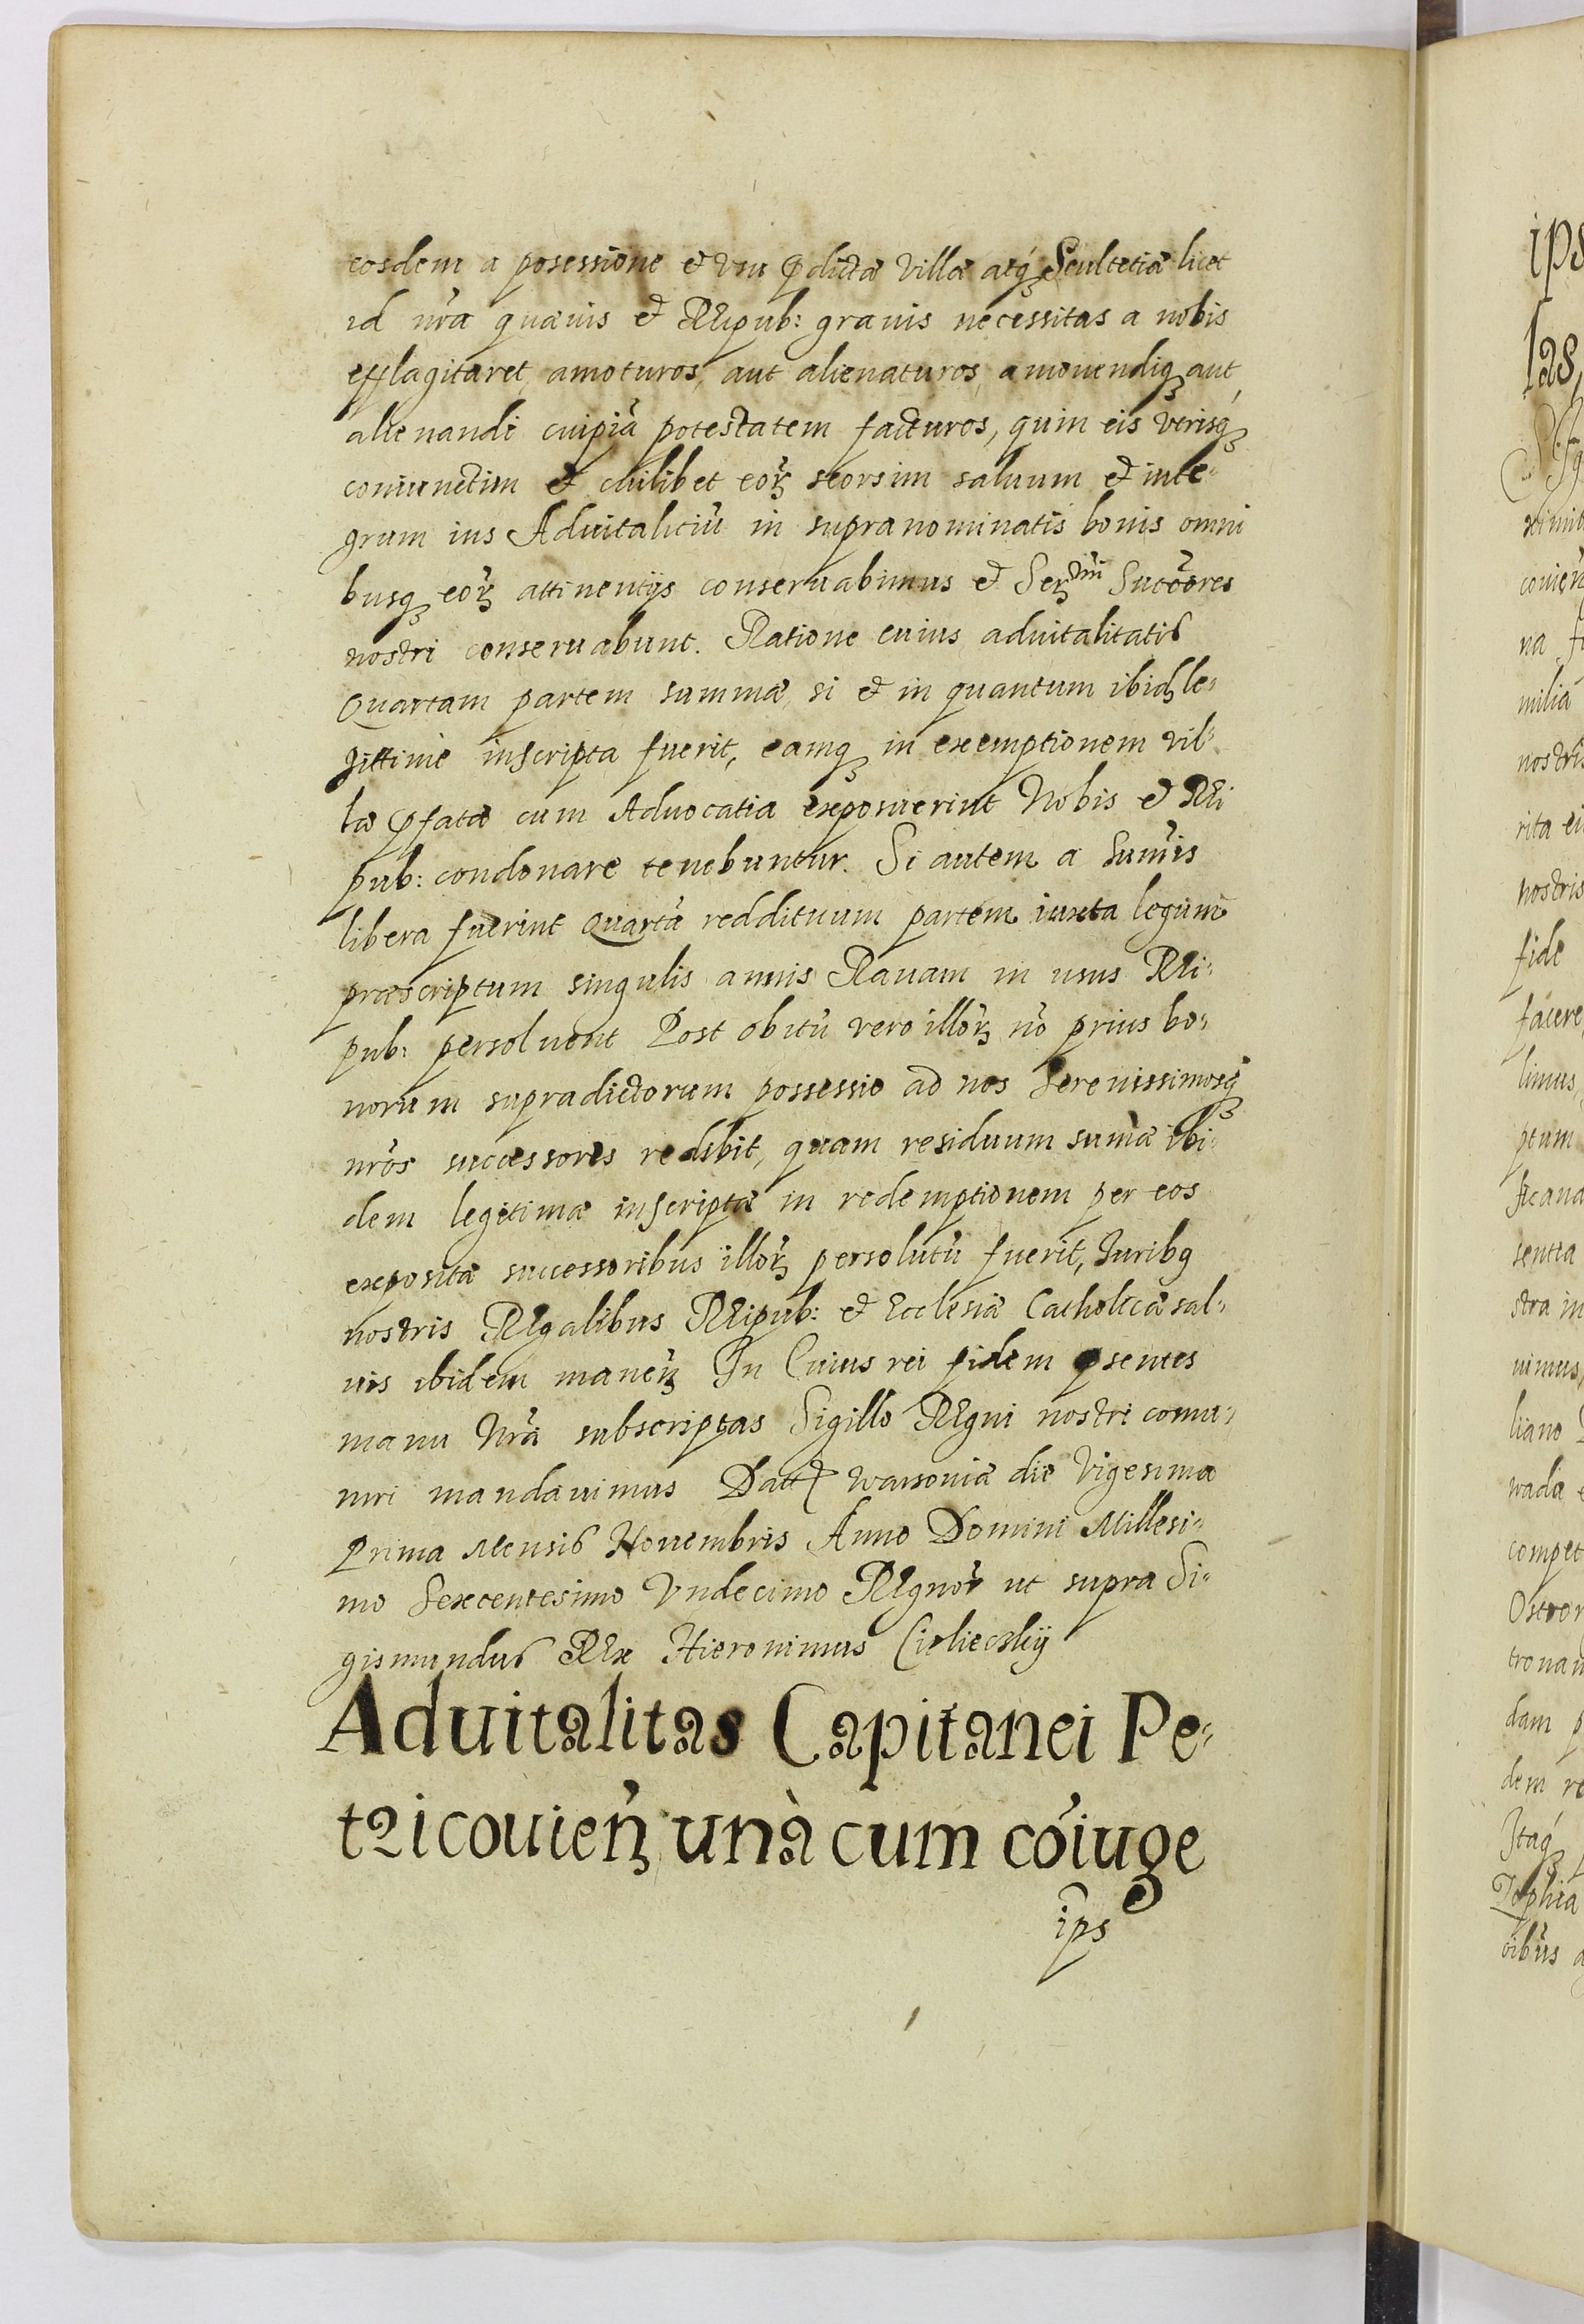 eosdem a posessione et vsu p̱dictæ villæ atq́ꝫ Scultetiæ licet
id nr̃a quæuis et Reipub: grauis necessitas a nobis
efflagitaret, amoturos, aut alienaturos, amouendiqꝫ aut
alienandi cuipiã potestatem facturos, quin eis vtrisq́ꝫ
coniunctim et cuilibet eor̃ꝫ seorsim saluum et inte-
grum ius Aduitaliciũ in supranominatis bonis omni
busqꝫ eor̃ꝫ attinentijs conseruabimus et Serꝫmi Succõres
nostri conseruabunt. Ratione cuius aduitalitatis
Quartam partem summæ, si et in quantum ibidꝫ le-
gittime inscripta fuerit, eamqꝫ in exemptionem vil-
læ p̱fatæ cum Aduocatia exposuerint Nobis et Rei
pub: condonare tenebuntur. Si autem a sum̃is
libera fuerint Quartã reddituum partem iuxta legum
præscriptum singulis annis Rauam in usus Rei-
pub: persoluent Post obitũ vero illor̃ꝫ nõ prius bo-
norum supradictorum possessio ad nos Serenissimosq́ꝫ
nr̃os successores redibit, quam residuum sum̃æ ibi-
dem legitimæ inscriptæ in redemptionem per eos
expositæ successoribus illor̃ꝫ persolutũ fuerit, Juribq
nostris Regalibus Reipub: et Ecclesiæ Catholicæ sal-
uis ibidem maneñꝫ In Cuius rei fidem p̱sentes
manu Nr̃a subscriptas Sigillo Regni nostri comu-
niri mandauimus Dattꝫ warsouiæ die Vigesima
Prima Mensis Nouembris Anno Domini Millesi-
mo Sexcentesimo Vndecimo Regnor̃ ut supra Si-
gismundus Rex Hieronimus Cieliecskÿ
Aduitalitas Capitanei Pe-
tricouieñꝫ unà cum cõiuge
ip̃s